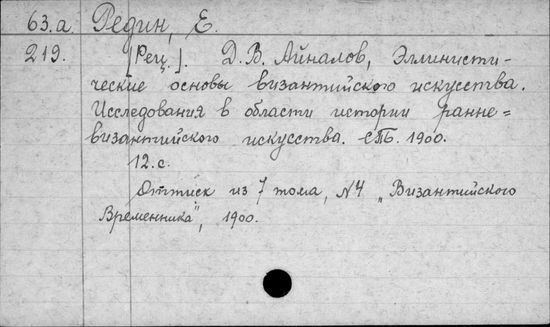 63.а. Редин, Е.
219. [Рец.]. Д.В. Айналов, Эллинисти-
ческие основы византийского искусства.
Исследования в области истории ранне=
византийского искусства. СПБ. 1900.
12.с.
Оттиск из 7 тома, №4 „Византийского
Временника", 1900.